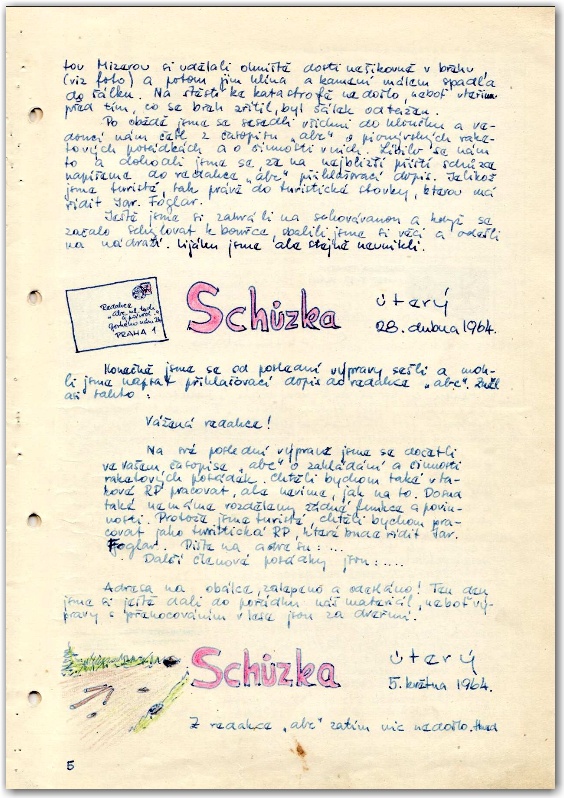 tov Mizerou si udělali ohniště dosti nešikovně v břehu
(viz foto) a potom jim hlína a kamení málem spadla
do šálku. Na štěstí ke katastrofě nedošlo, neboť vteřinu
před tím, co se břeh zřítil, byl šálek odtažen.
Po obědě jsme se sesedli všichni do klubíčka a ve-
doucí nám četl z časopisu „abc" o pionýrských rake-
tových posádkách a o činnosti v nich. Líbilo se nám
to a dohodli jsme se, že na nejbližší příští schůzce
napíšeme do redakce „abc" přihlašovací dopis. Jelikož
jsme turisté, tak právě do turistické stovky, kterou má
řídit Jar. Foglar.
Ještě jsme si zahráli na schovávanou a když se
začalo schylovat k bouřce, sbalili jsme si věci a odešli
na nádraží. Lijáku jsme ale stejně neunikli.
Redakce
„abc ml. techn.
a přírod."
PRAHA 1
Schůzka
úterý
28. dubna 1964.
Konečně jsme se od poslední výpravy sešli a moh-
li jsme napsat přihlašovací dopis do redakce „abc". Zněl
asi takto:
Vážená redakce!
Na své poslední výpravě jsme se dočetli
ve Vašem časopise „abc" o zakládání a činnosti
raketových posádek. Chtěli bychom také v ta-
kové RP pracovat, ale nevíme, jak na to. Dosud
také nemáme rozděleny žádné funkce a povin-
nosti. Protože jsme turisté, chtěli bychom pra-
covat jako turistická RP, které bude řídit Jar.
Foglar. Pište na adresu: ...
Další členové posádky jsou: .....
Adresa na obálce, zalepeno a odesláno! Ten den
jsme si ještě dali do pořádku náš materiál, neboť vý-
pravy s přenocováním v lese jsou za dveřmi.
Schůzka
úterý
5. května 1964.
Z redakce „abc" zatím nic nedošlo. Hned
5